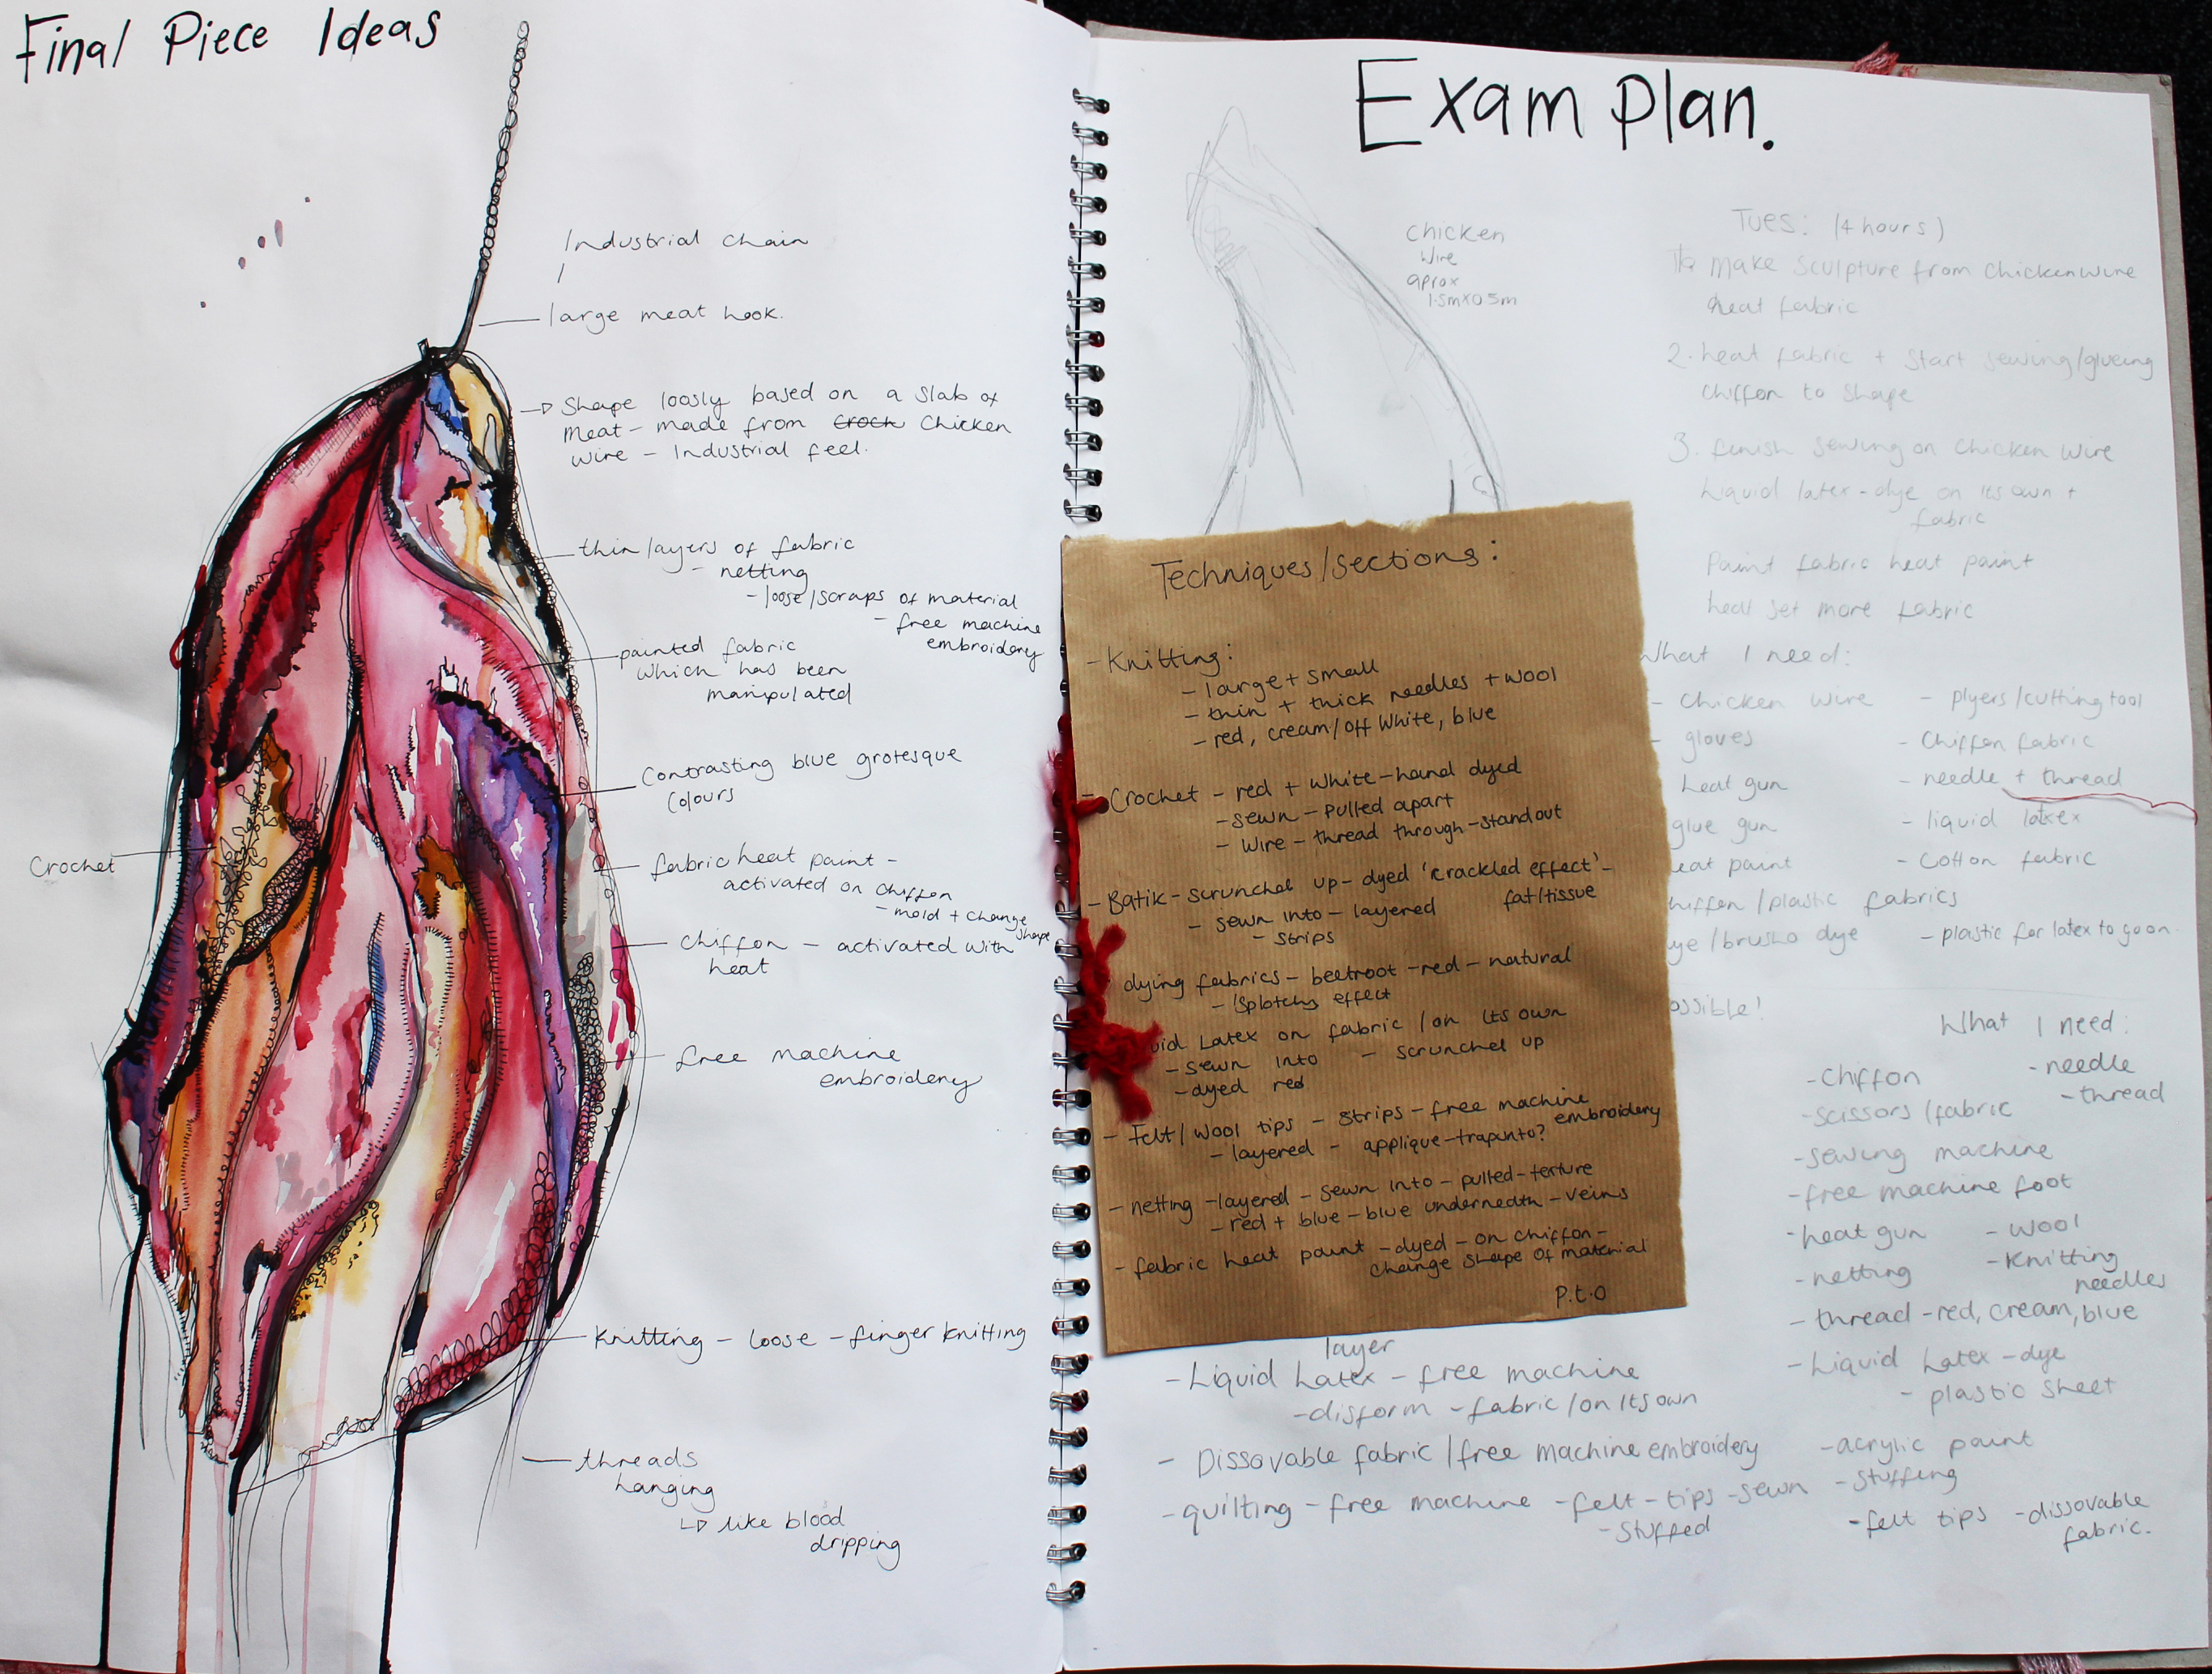 Final Piece Ideas
Industrial chain
large meat hook.
Shape loosly based on a slab of
meat - made from croch chicken
wire - Industrial feel.
thin layers of fabric
- netting
- loose/scraps of material
- free machine
embroidery
painted fabric
which has been
manipulated
Contrasting blue grotesque
colours
Crochet
fabric heat paint -
activated on chiffon
- mold + change
shape
chiffon - activated with
heat
free machine
embroidery
Knitting - loose - finger knitting
threads
hanging
like blood
dripping
Exam Plan.
Chicken
wire
aprox
1.5m x 0.5m
Tues: (4 hours)
Make sculpture from chickenwire
heat fabric
2. heat fabric + start sewing/glueing
chiffon to shape
3. finish sewing on chicken wire
Liquid latex - dye on its own +
fabric
Paint fabric heat paint
heat set more fabric
What I need:
- Chicken wire - plyers/cutting tool
- gloves - Chiffon fabric
heat gun - needle + thread
glue gun - liquid latex
eat paint - cotton fabric
hiffon/plastic fabrics
ye/brusho dye - plastic for latex to go on.
ossible!
Techniques/sections:
- Knitting:
- large + small
- thin + thick needles + wool
- red, cream/off white, blue
- Crochet - red + white - hand dyed
- sewn - pulled apart
- wire - thread through - stand out
- Batik - scrunched up - dyed 'crackled effect' -
fat/tissue
- sewn into - layered
- strips
dying fabrics - beetroot - red - natural
- 'splotchy effect
uid Latex on fabric / on its own
- sewn into - scrunched up
- dyed red
- Felt/wool tips - strips - free machine
embroidery
- layered - applique - trapunto?
- netting - layered - sewn into - pulled - texture
- red + blue - blue underneath - veins
- fabric heat paint - dyed - on chiffon -
change shape of material
P.t.o
layer
- Liquid Latex - free machine
- disform - fabric / on its own
- Dissovable fabric / free machine embroidery
- quilting - free machine - felt - tips - sewn
- stuffed
What I need:
- Chiffon - needle
- scissors/fabric - thread
- sewing machine
- free machine foot
- heat gun - wool
- netting - Knitting
needles
- thread - red, cream, blue
- Liquid Latex - dye
- plastic sheet
- acrylic paint
- stuffing
- felt tips - dissovable
fabric.